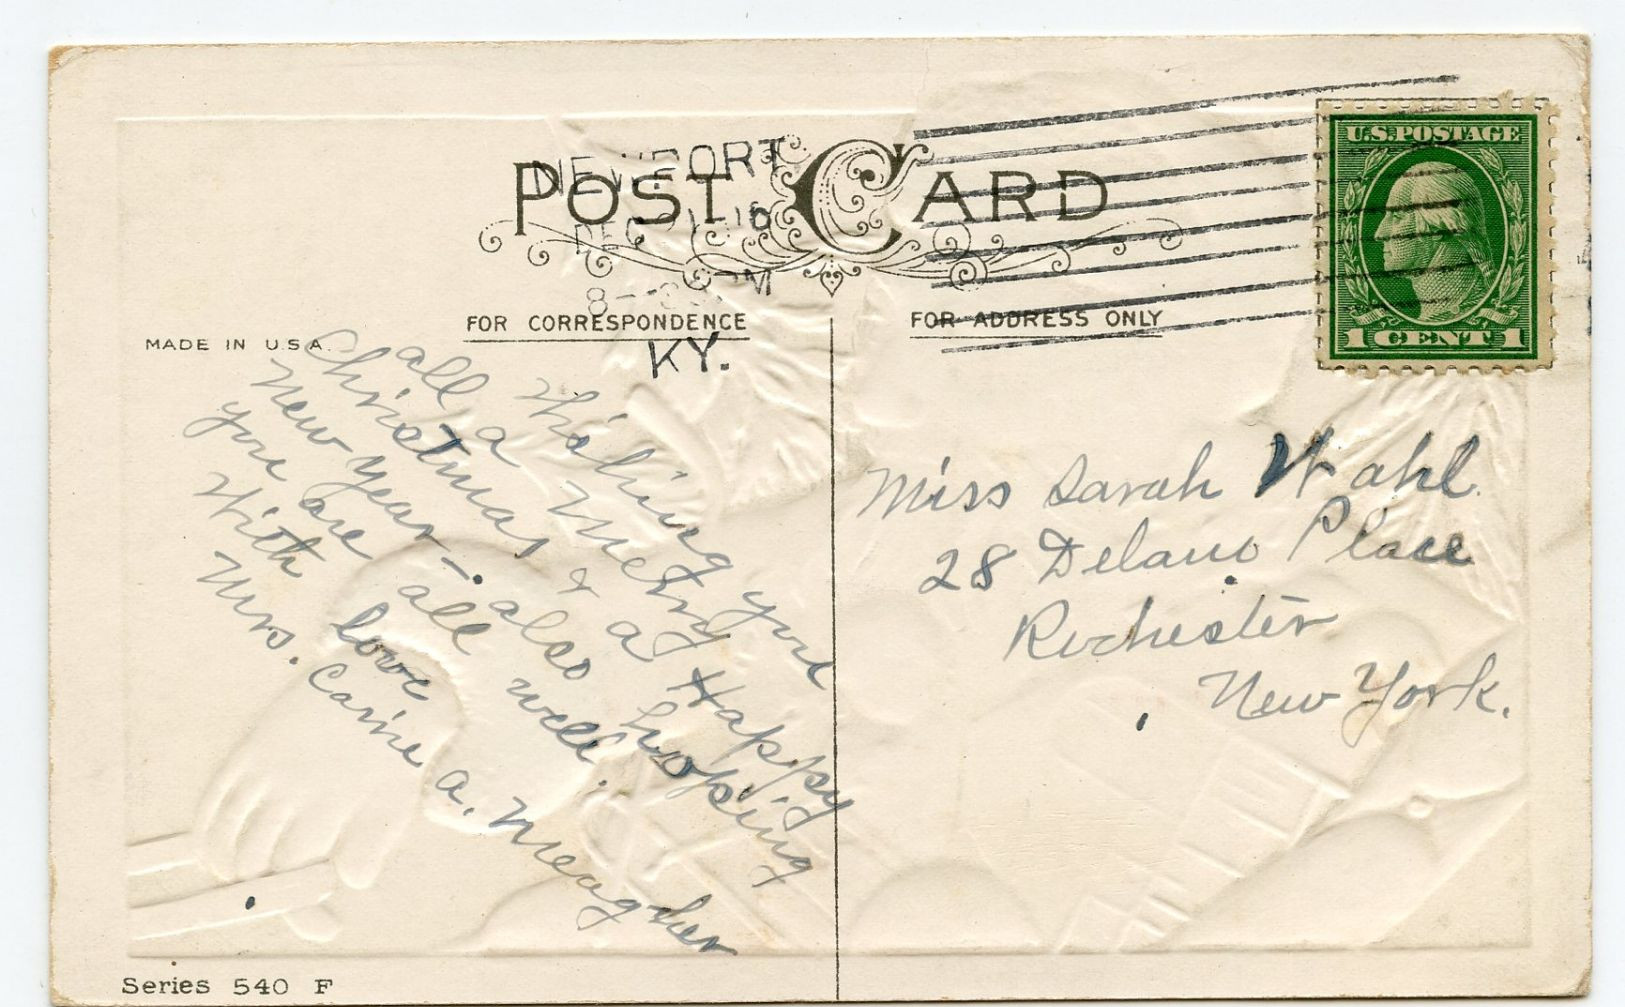 POST CARD
NEWPORT
DEC 16
8— PM
KY.
U.S. POSTAGE
1 CENT 1
FOR CORRESPONDENCE
FOR ADDRESS ONLY
MADE IN U.S.A.
Wishing you
all a Merry
Christmas & a Happy
New Year – also hoping
you are all well.
With love
Mrs. Carrie A. Meagher
Miss Sarah Wahl
28 Delano Place
Rochester
New York.
Series 540 F